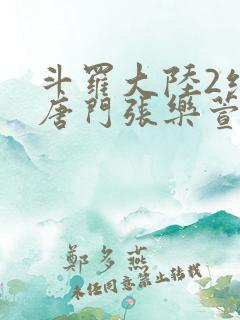 斗羅大陸2絕
唐門張樂萱
鄭多燕
未經同意禁止轉載